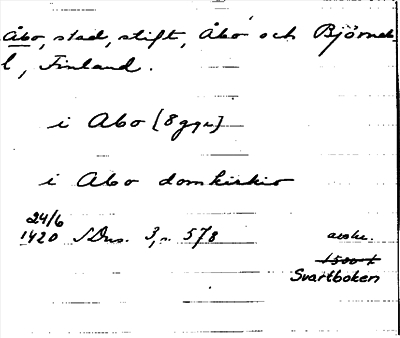 Åbo, stad, stift, Åbo och Björneb.
l, Finland.
i Abo [8 ggr]
i Abo domkirkio
24/6
1420 SDns. 3, s. 578 avskr.
Svartboken